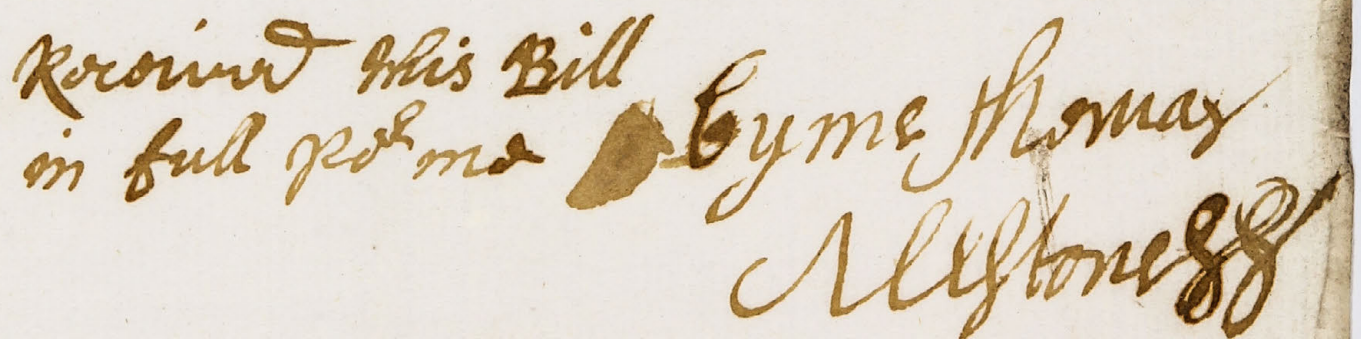 Receiued this Bill
in full per me
by me Thomas
Allestone